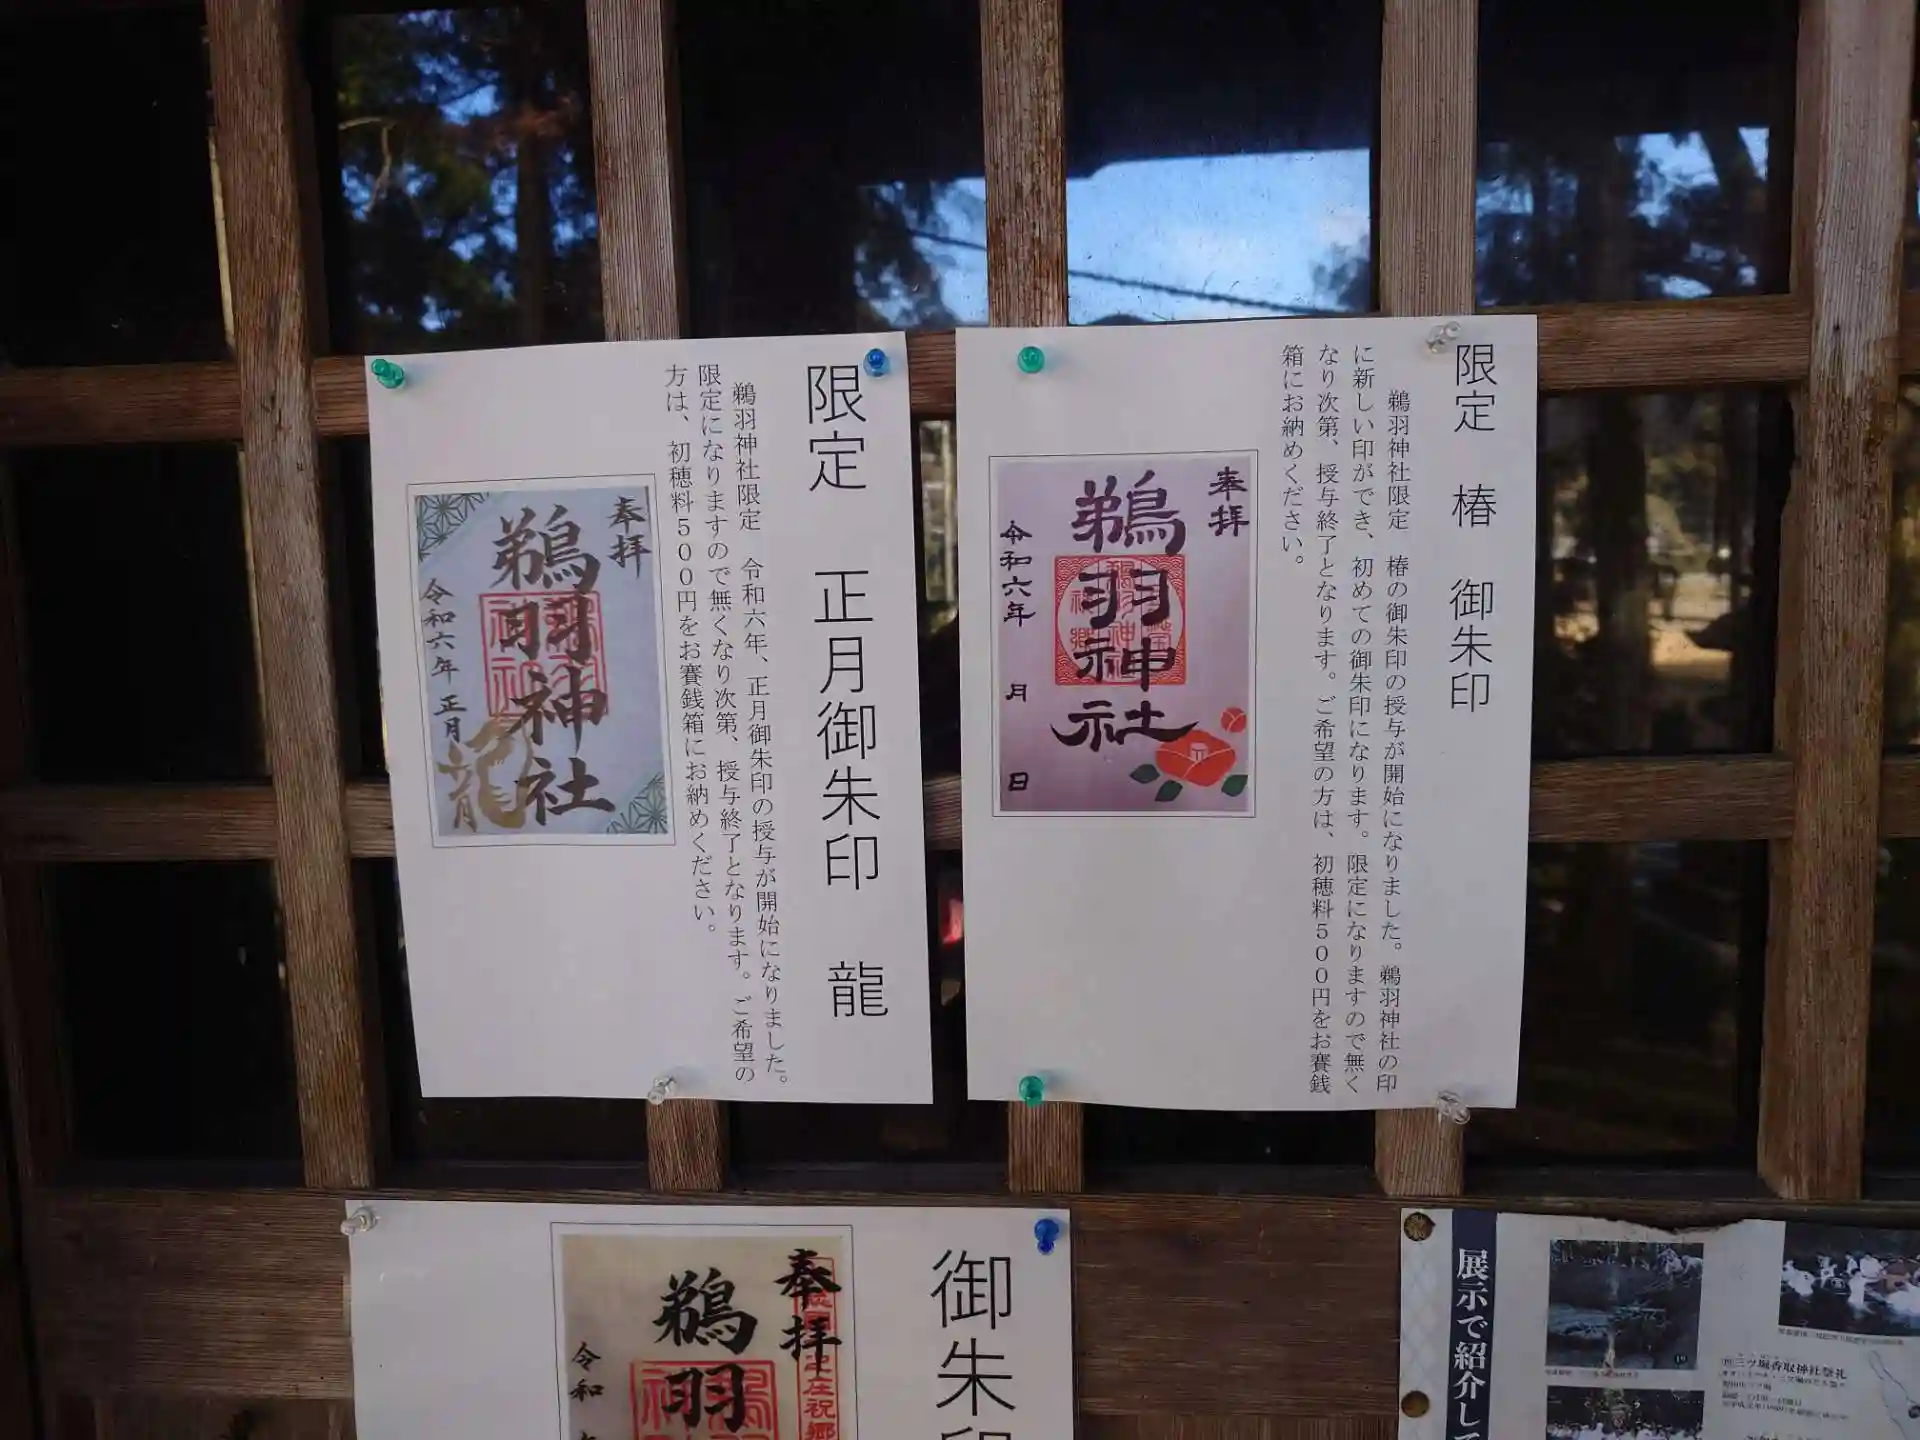 限定　椿　御朱印
鵜羽神社限定　椿の御朱印の授与が開始になりました。鵜羽神社の印
に新しい印ができ、初めての御朱印になります。限定になりますので無く
なり次第、授与終了となります。ご希望の方は、初穂料500円をお賽銭
箱にお納めください。
奉拝
鵜羽神社
令和六年　月　日
限定　正月御朱印　龍
鵜羽神社限定　令和六年、正月御朱印の授与が開始になりました。
限定になりますので無くなり次第、授与終了となります。ご希望の
方は、初穂料500円をお賽銭箱にお納めください。
奉拝
鵜羽神社
令和六年 正月
龍
御朱印
奉拝
鵜羽
令和
展示で紹介して
三ツ堀香取神社祭礼
19